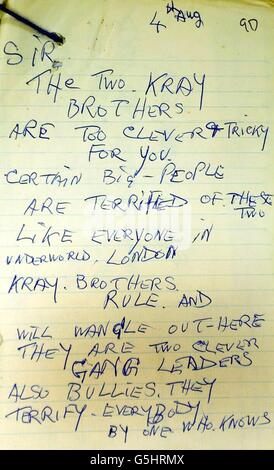 4th Aug
90
SIR.
THE TWO. KRAY
BROTHERS
ARE TOO CLEVER + TRICKY
FOR YOU.
CERTAIN BIG-PEOPLE
ARE TERRIFIED OF. THESE
TWO
LIKE EVERYONE IN
UNDERWORLD, LONDON
KRAY. BROTHERS.
RULE. AND
WILL WANGLE OUT-HERE
THEY ARE TWO CLEVER
GANG LEADERS
ALSO BULLIES. THEY
TERRIFY. EVERYBODY
BY ONE WHO. KNOWS
alamy
www.alamy.com
G5HRMX